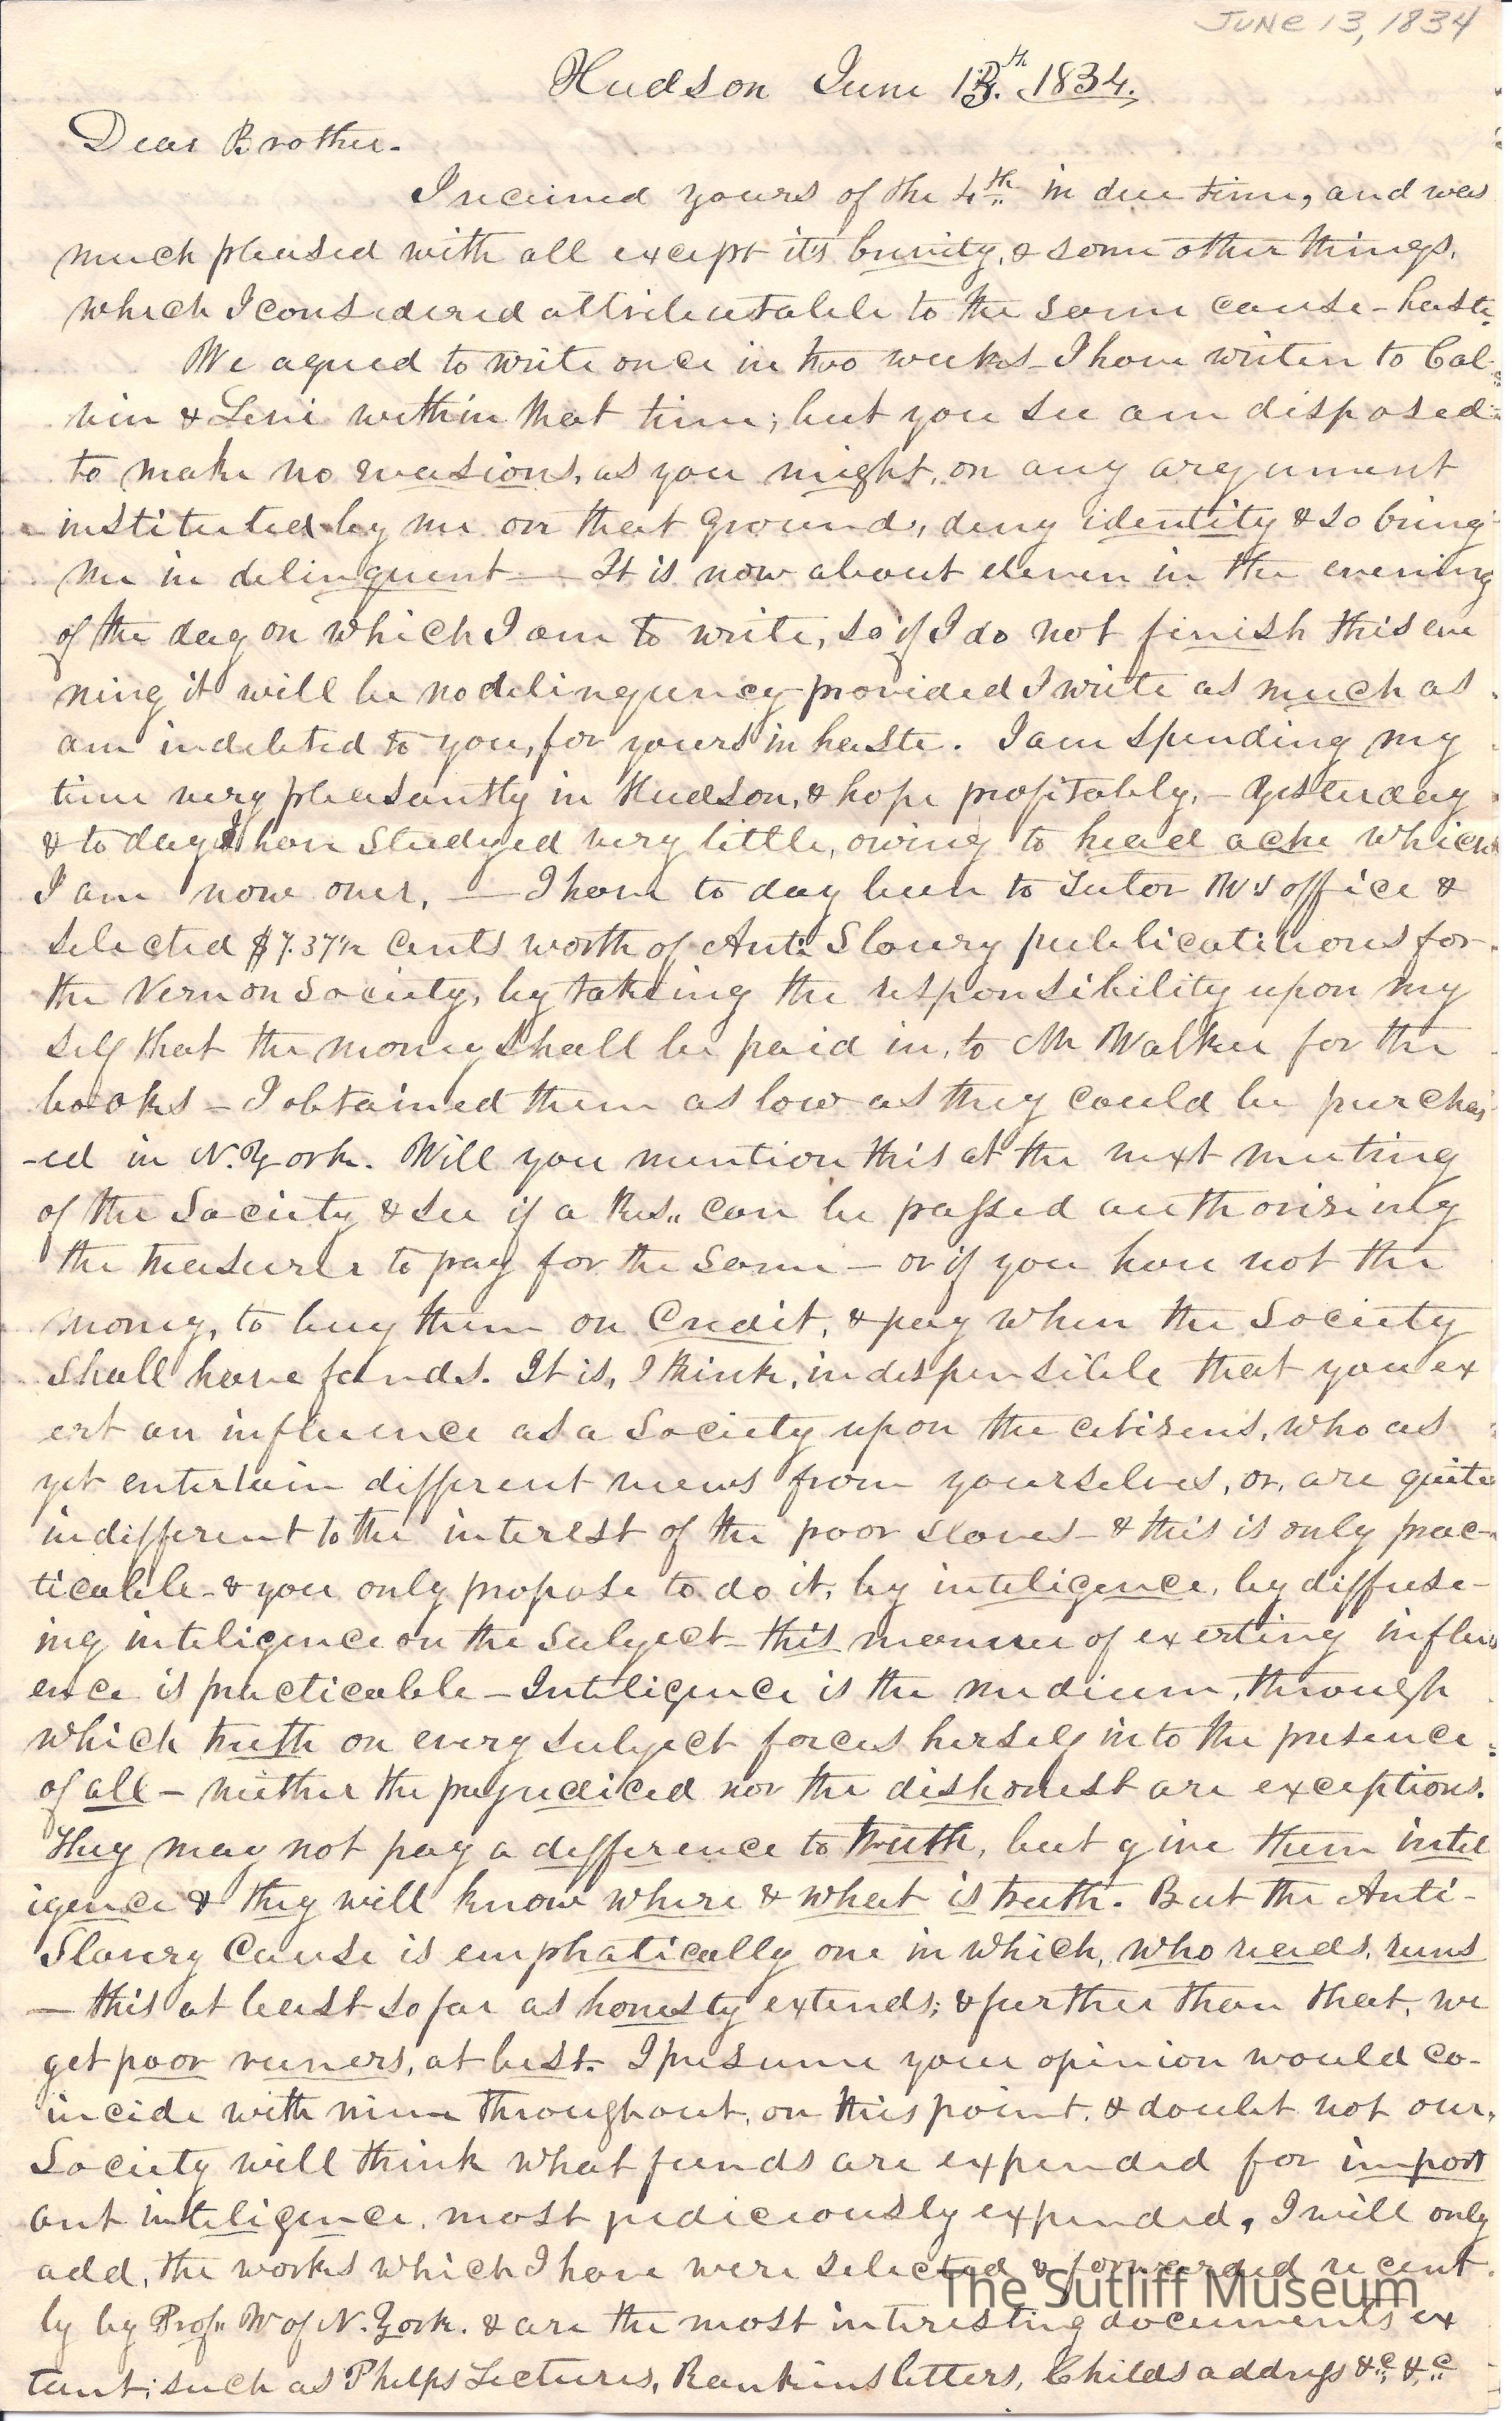 JUNE 13, 1834
Hudson June 13.th 1834.
Dear Brother.
I received yours of the 4th in due time, and was
much pleased with all except its brevity, & some other things,
which I considered attributable to the same cause - haste.
We agreed to write once in two weeks - I have writen to Cal-
vin & Levi within that time; but you see am disposed
to make no evasions, as you might, on any argument
instituted by me on that ground, deny identity & so bring
me in delinquent — It is now about eleven in the evening
of the day on which I am to write, so if I do not finish this eve
ning it will be no delinquency provided I write as much as
am indebted to you, for yours in haste. I am spending my
time very pleasantly in Hudson, & hope profitably, - Yesterday
& to day I have studyed very little, owing to head ache which
I am now over, — I have to day been to Tutor W's office &
selected $7.37½ cents worth of Anti Slavery publicatiions for
the Vernon Society, by taking the responsibility upon my
self that the money shall be paid in, to Mr Walker for the
books - I obtained them as low as they could be purchas
-ed in N. York. Will you mention this at the next meeting
of the Society & see if a Res.. can be passed authorising
the treasurer to pay for the same - or if you have not the
money, to buy them on Credit, & pay when the Society
shall have funds. It is, I think, indispensible that you ex
ert an influence as a Society upon the citizens, who as
yet entertain different views from yourselves, or, are quite
indifferent to the interest of the poor slaves - & this is only prac-
ticable - & you only propose to do it, by inteligence, by diffuse-
ing inteligence on the subject - this manner of exerting influ
ence is practicable - Inteligence is the medium, through
which truth on every subject forces herself into the presence
of all - neither the prejudiced nor the dishonest are exceptions.
They may not pay a difference to truth, but give them intel
igence & they will know where & what is truth. But the Anti-
Slavery Cause is emphatically one in which, who reads, runs
— this at least so far as honesty extends; & further than that, we
get poor runers, at best. I presume your opinion would co-
incide with mine throughout, on this point, & doubt not our,
Society will think what funds are expended for import
ant inteligence, most judiciously expended, I will only
add, the works which I have were selected & forwarded recent
ly by Prof.. W of N. York. & are the most interesting documents ex
tant; such as Phelps Lectures, Rankins letters, Childs address &c, &c
The Sutliff Museum